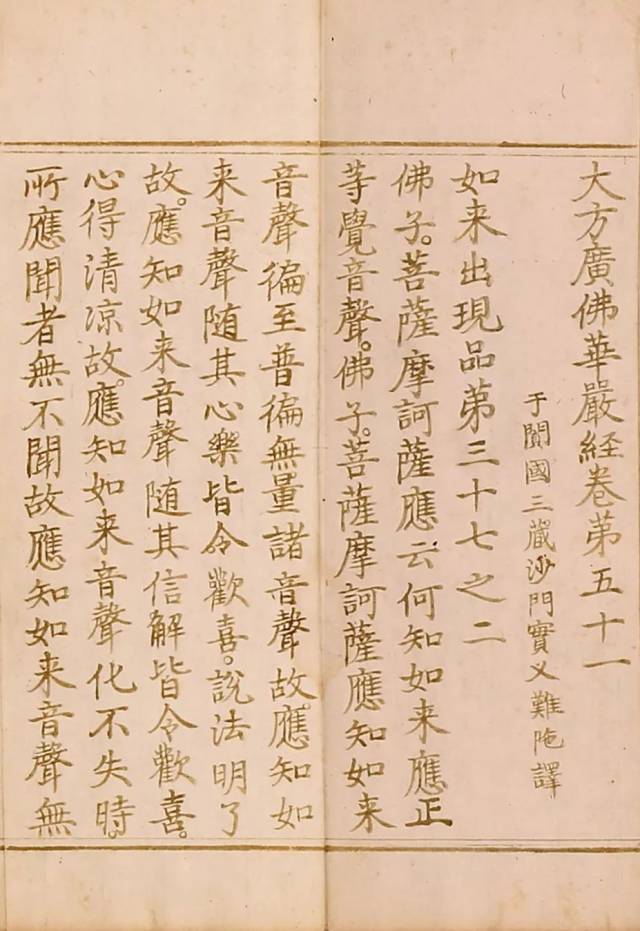 大方廣佛華嚴経卷第五十一
于闐國三藏沙門實叉難陁譯
如来出現品第三十七之二
佛子。菩薩摩訶薩應云何知如来應正
等覺音聲。佛子。菩薩摩訶薩應知如来
音聲徧至普徧無量諸音聲故。應知如
来音聲随其心樂皆令歡喜。說法明了
故。應知如来音聲随其信解皆令歡喜。
心得清凉故。應知如来音聲化不失時。
所應聞者無不聞故應知如来音聲無